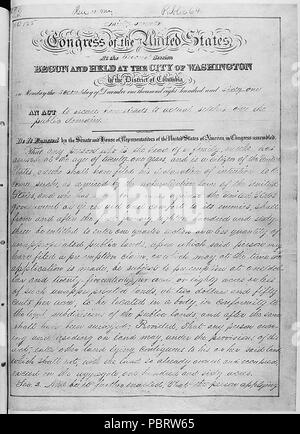 Public 64
Congress of the United States,
At the Second Session
BEGUN AND HELD AT THE CITY OF WASHINGTON
in the District of Columbia
on Monday the second day of December one thousand eight hundred and sixty-one
AN ACT to secure homesteads to actual settlers on the
public domain.
Be it Enacted by the Senate and House of Representatives of the United States of America in Congress assembled,
That any person who is the head of a family, or who has
arrived at the age of twenty-one years, and is a citizen of the United
States, or who shall have filed his declaration of intention to be-
come such, as required by the naturalization laws of the United
States, and who has never borne arms against the United States
Government or given aid and comfort to its enemies, shall,
from and after the first January, eighteen hundred and sixty
three, be entitled to enter one quarter section or a less quantity of
unappropriated public lands, upon which said person may
have filed a preemption claim, or which may, at the time the
application is made, be subject to preemption at one dol-
lar and twenty five cents, or less, per acre; or eighty acres or less
of such unappropriated lands, at two dollars and fifty
cents per acre, to be located in a body, in conformity to
the legal subdivisions of the public lands, and after the same
shall have been surveyed: Provided, That any person own-
ing and residing on land may, under the provisions of this
act, enter other land lying contiguous to his or her said land,
which shall not, with the land so already owned and occupied,
exceed in the aggregate one hundred and sixty acres.
Sec. 2. And be it further enacted, That the person applying
alamy
Image ID: PBRW65
www.alamy.com